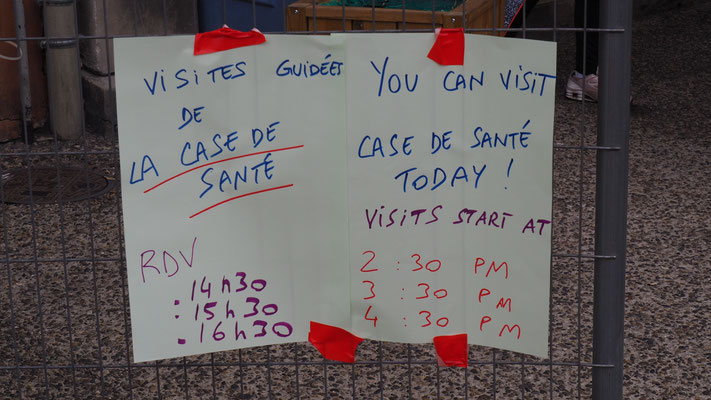 VISITES GUIDÉES
DE
LA CASE DE
SANTÉ
RDV
: 14h30
: 15h30
: 16h30
YOU CAN VISIT
CASE DE SANTÉ
TODAY !
VISITS START AT
2 : 30 PM
3 : 30 PM
4 : 30 PM